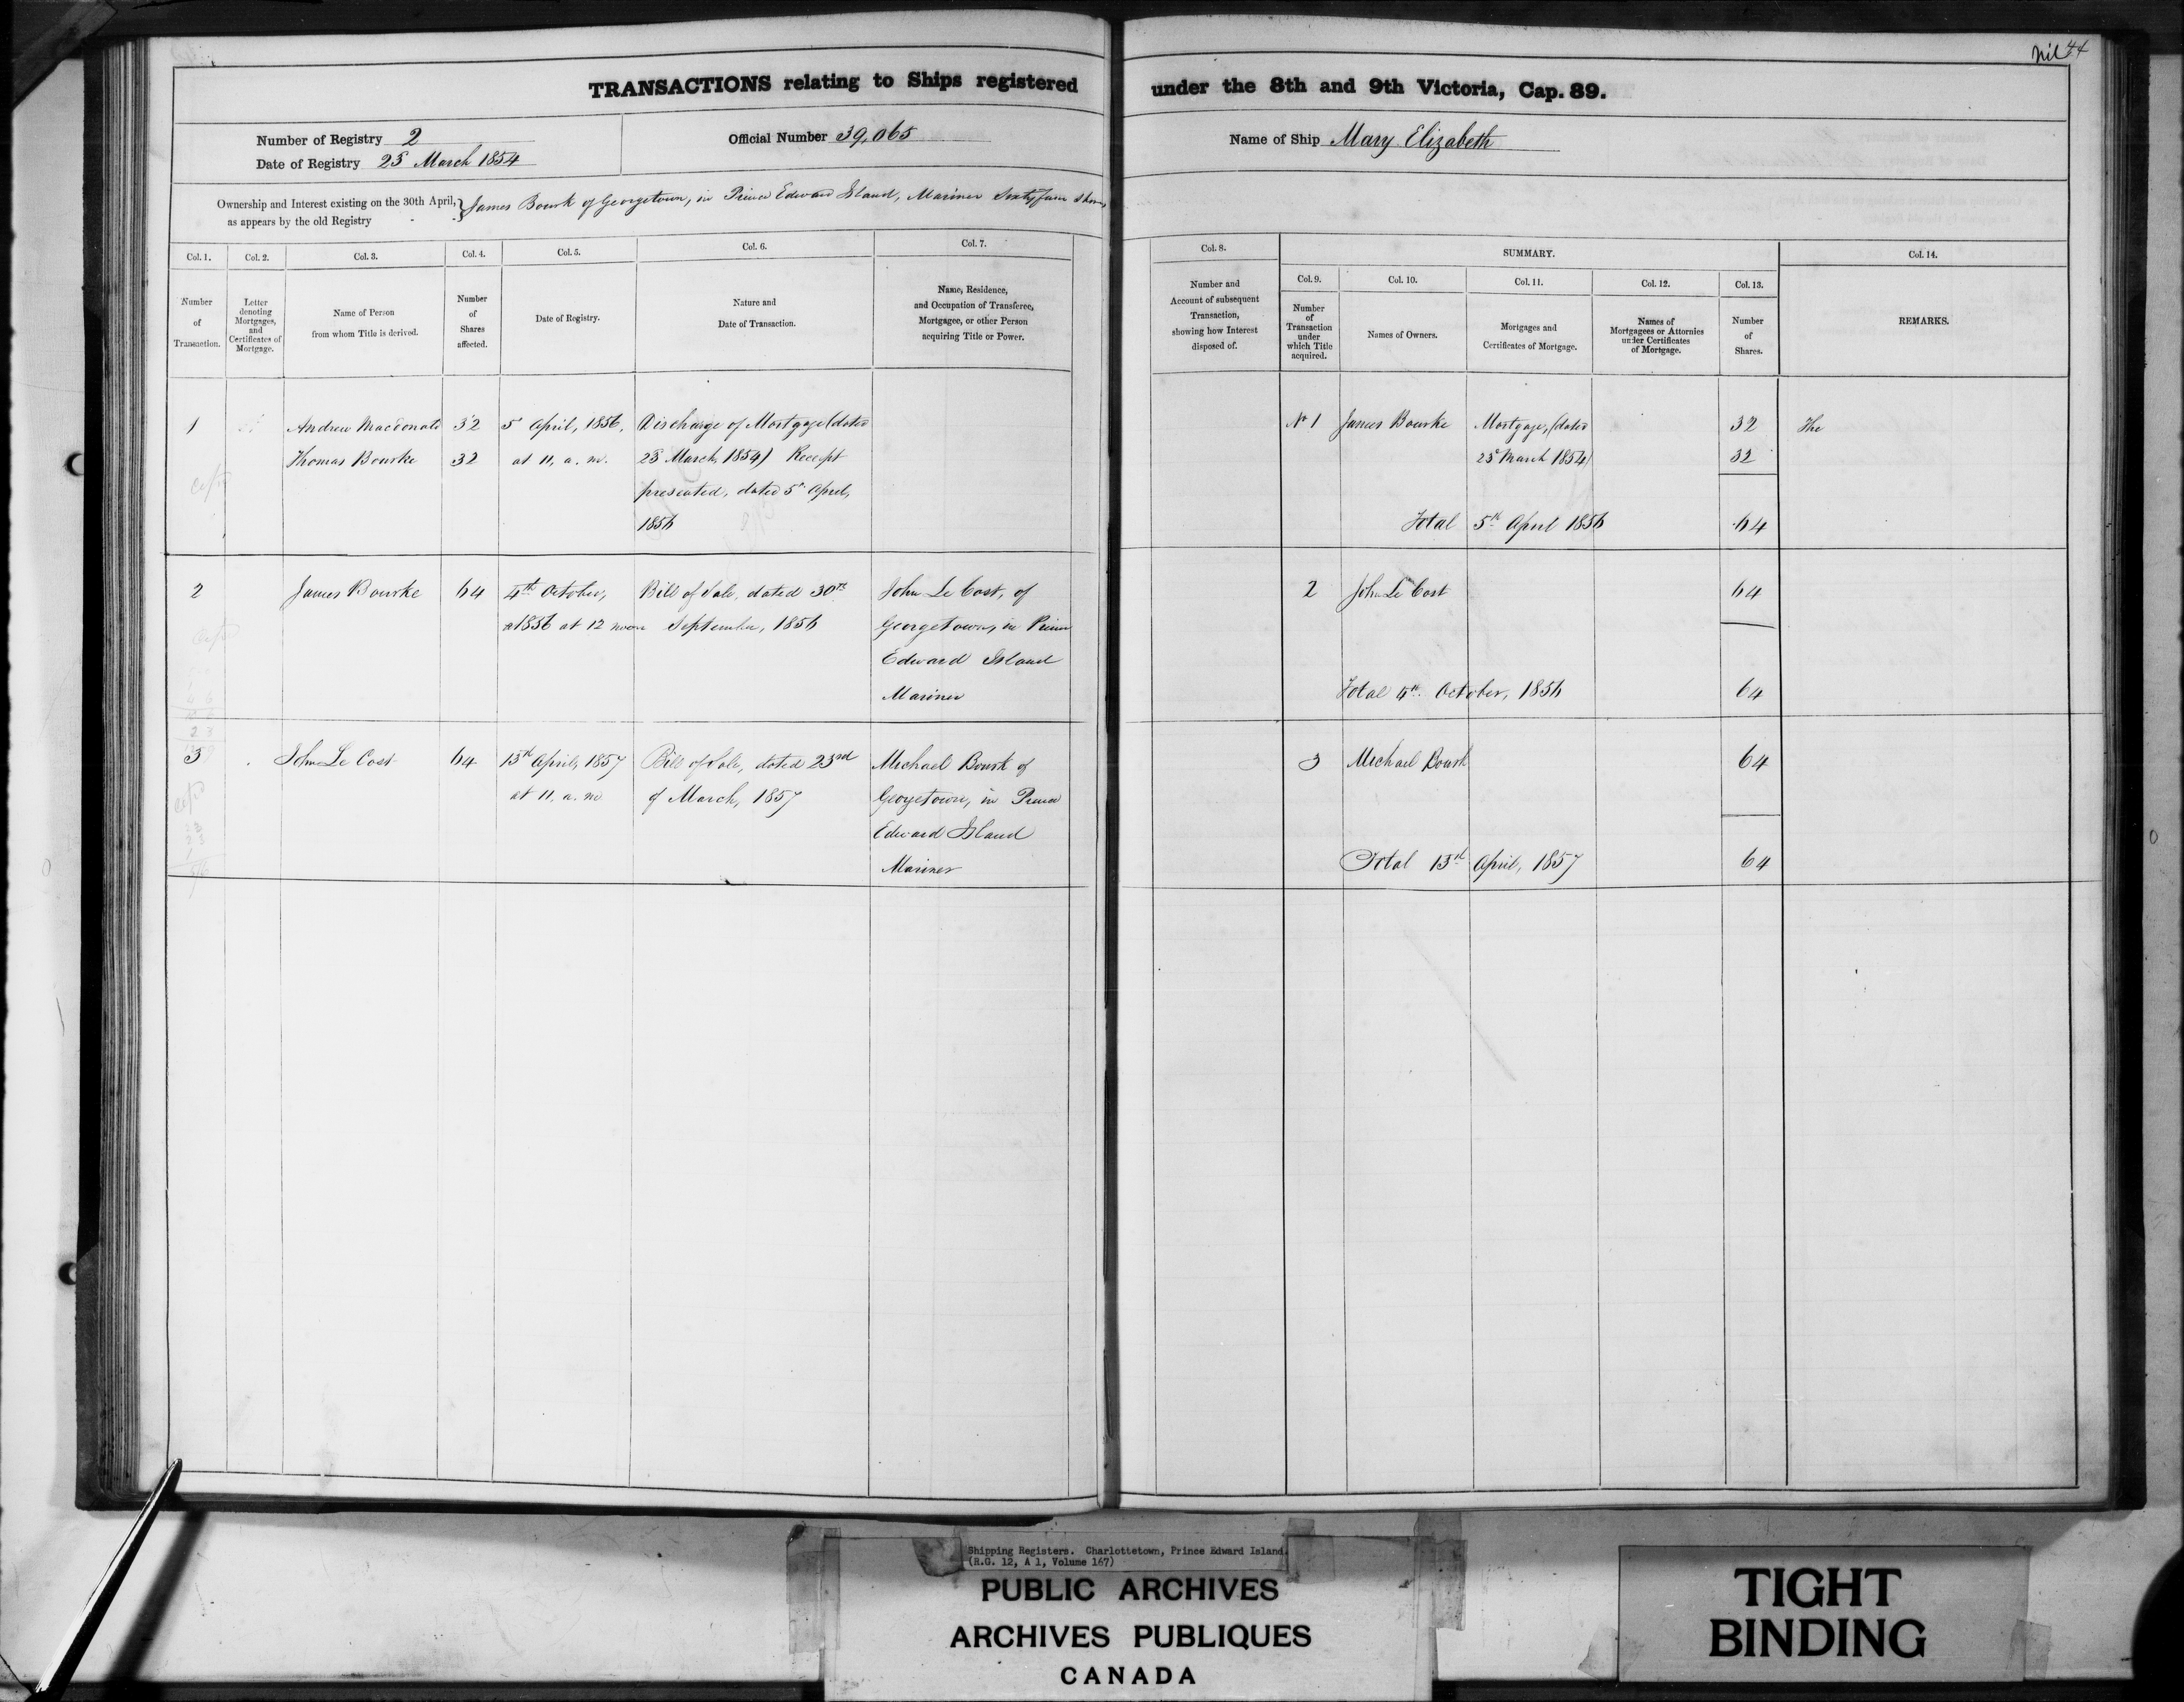 Nil 44
TRANSACTIONS relating to Ships registered under the 8th and 9th Victoria, Cap. 89.
Number of Registry 2
Date of Registry 23 March 1854
Official Number 39,065
Name of Ship Mary Elizabeth
Ownership and Interest existing on the 30th April,
as appears by the old Registry
James Bourk of Georgetown, in Prince Edward Island, Mariner Sixty four Shares
Col. 1. Col. 2. Col. 3. Col. 4. Col. 5. Col. 6. Col. 7.
Number of Transaction.
Letter denoting Mortgages, and Certificates of Mortgage.
Name of Person from whom Title is derived.
Number of Shares affected.
Date of Registry.
Nature and Date of Transaction.
Name, Residence, and Occupation of Transferee, Mortgagee, or other Person acquiring Title or Power.
Col. 8. SUMMARY. Col. 14.
Col. 9. Col. 10. Col. 11. Col. 12. Col. 13.
Number and Account of subsequent Transaction, showing how Interest disposed of.
Number of Transaction under which Title acquired.
Names of Owners.
Mortgages and Certificates of Mortgage.
Names of Mortgagees or Attornies under Certificates of Mortgage.
Number of Shares.
REMARKS.
1 Andrew Macdonald 32 5 April, 1856, Discharge of Mortgage (dated
Thomas Bourke 32 at 11, a. m. 23 March 1854) Receipt
presented, dated 5th April,
1856
No 1 James Bourke Mortgage, (dated 32 The
23 March 1854) 32
Total 5th April 1856 64
2 James Bourke 64 4th October, Bill of Sale, dated 30th John Le Cost, of
1856 at 12 noon September, 1856 Georgetown, in Prince
Edward Island
Mariner
2 John Le Cost 64
Total 4th October, 1856 64
3 John Le Cost 64 13th April, 1857 Bill of Sale, dated 23rd Michael Bourk of
at 11, a. m of March, 1857 Georgetown, in Prince
Edward Island
Mariner
3 Michael Bourk 64
Total 13th April, 1857 64
Shipping Registers. Charlottetown, Prince Edward Island.
(R.G. 12, A 1, Volume 167)
PUBLIC ARCHIVES
ARCHIVES PUBLIQUES
CANADA
TIGHT
BINDING